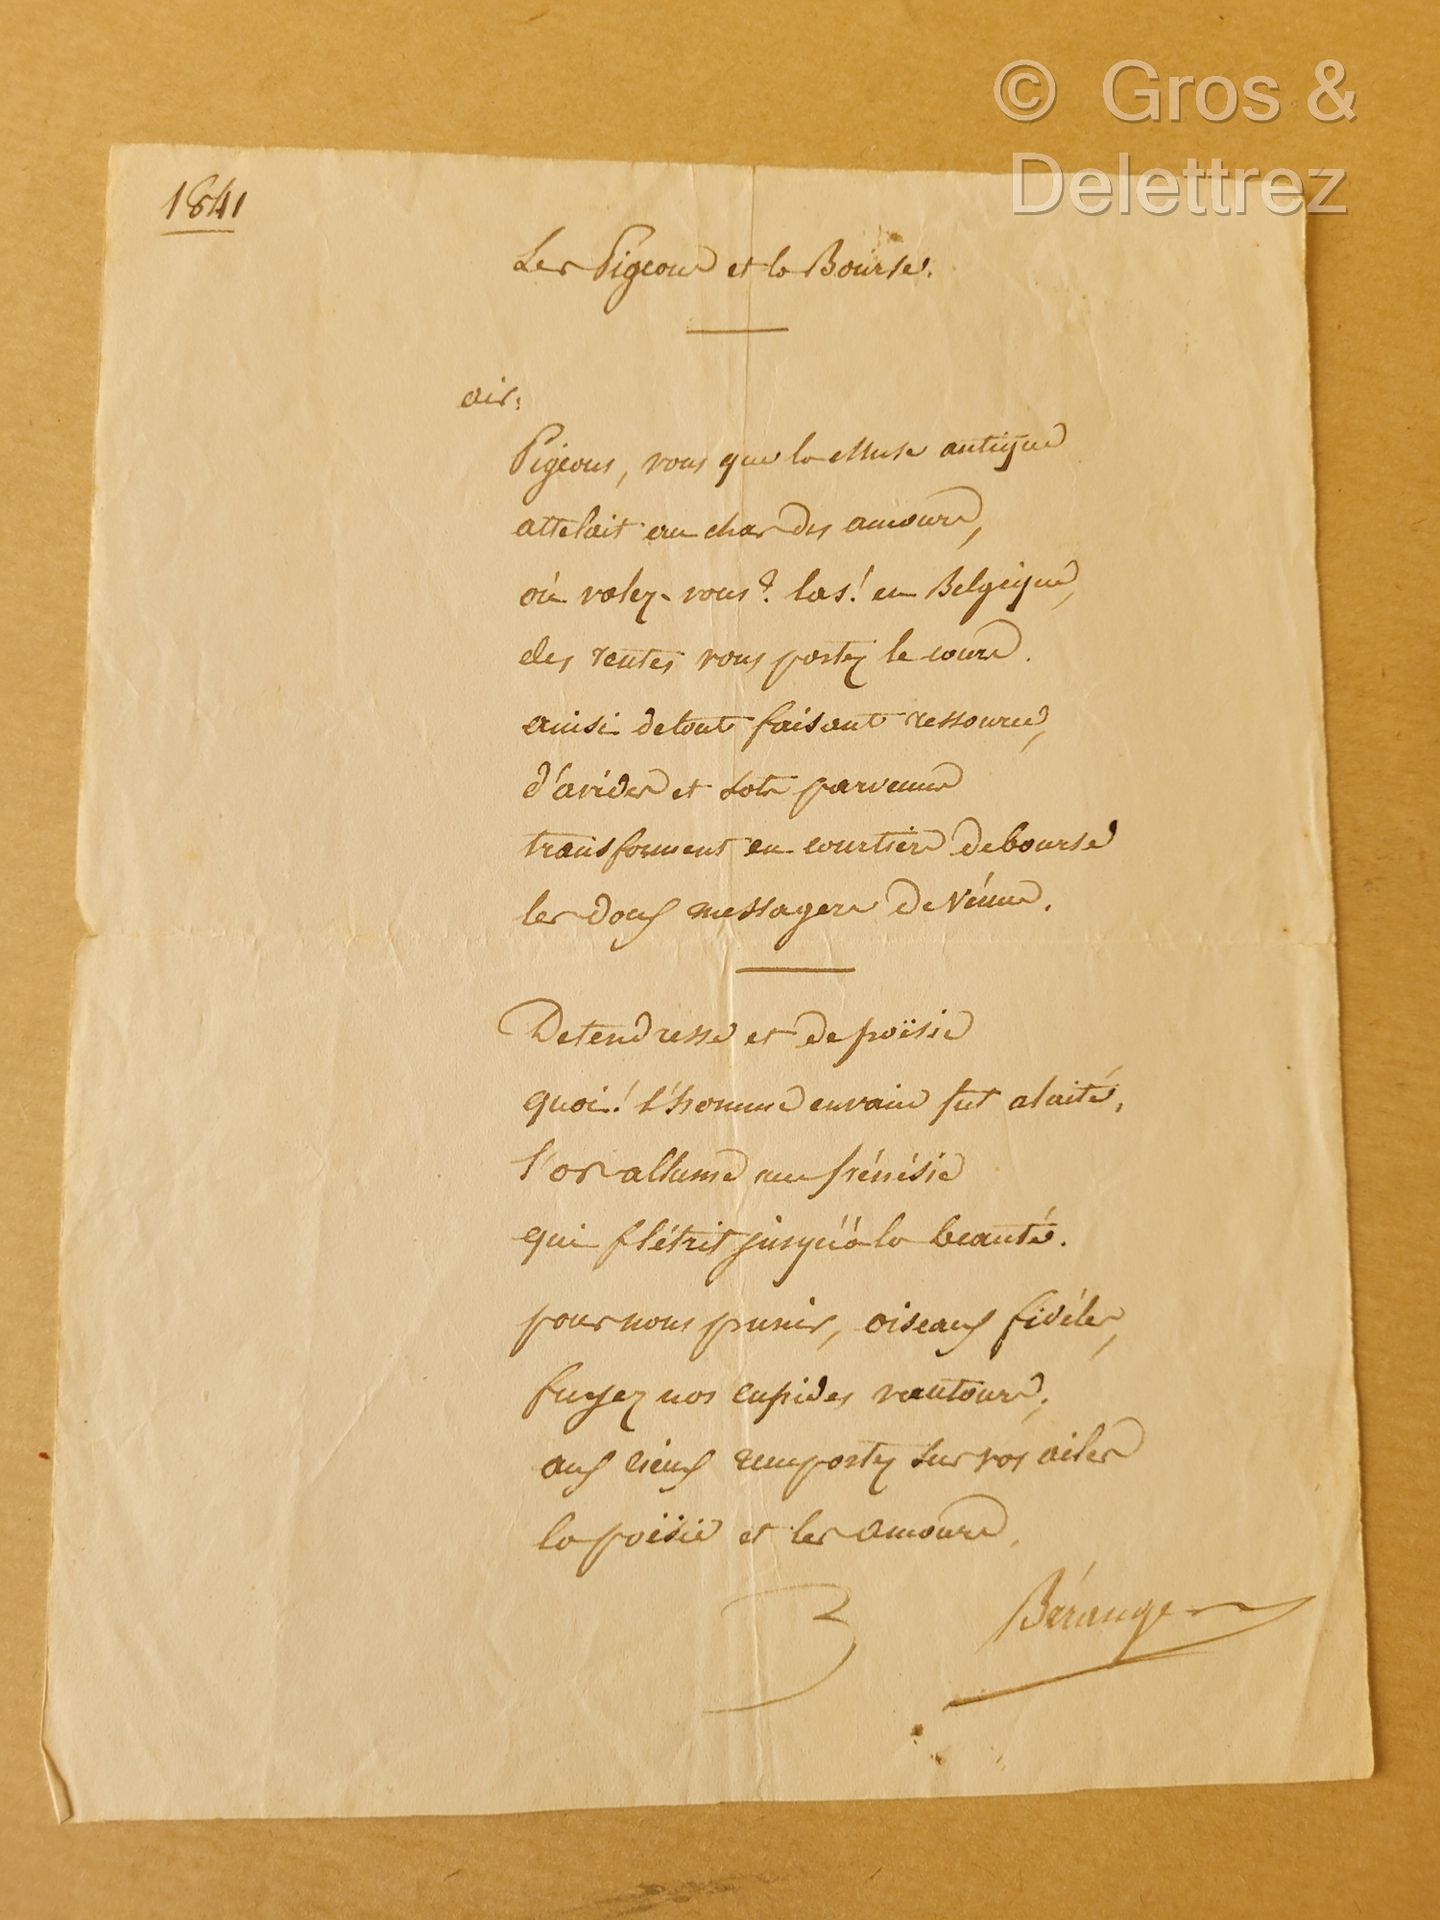 © Gros &
Delettrez
1841
Les Pigeons et la Bourse.
air:
Pigeons, vous que la Muse antique
attelait au char des amours,
où volez-vous? las! en Belgique,
des rentes vous portez le cours.
ainsi de tout faisant ressource,
d'avides et sots parvenus
transforment en courtiers de bourse
les doux messagers de Vénus.
De tendresse et de poësie
quoi! l'homme envain fut alaité,
l'or allume une frénésie
qui flétrit jusqu'à la beauté.
pour nous punir, oiseaux fidéles,
fuyez nos cupides vautours;
aux cieux remportez sur vos ailes
la poësie et les amours.
Béranger